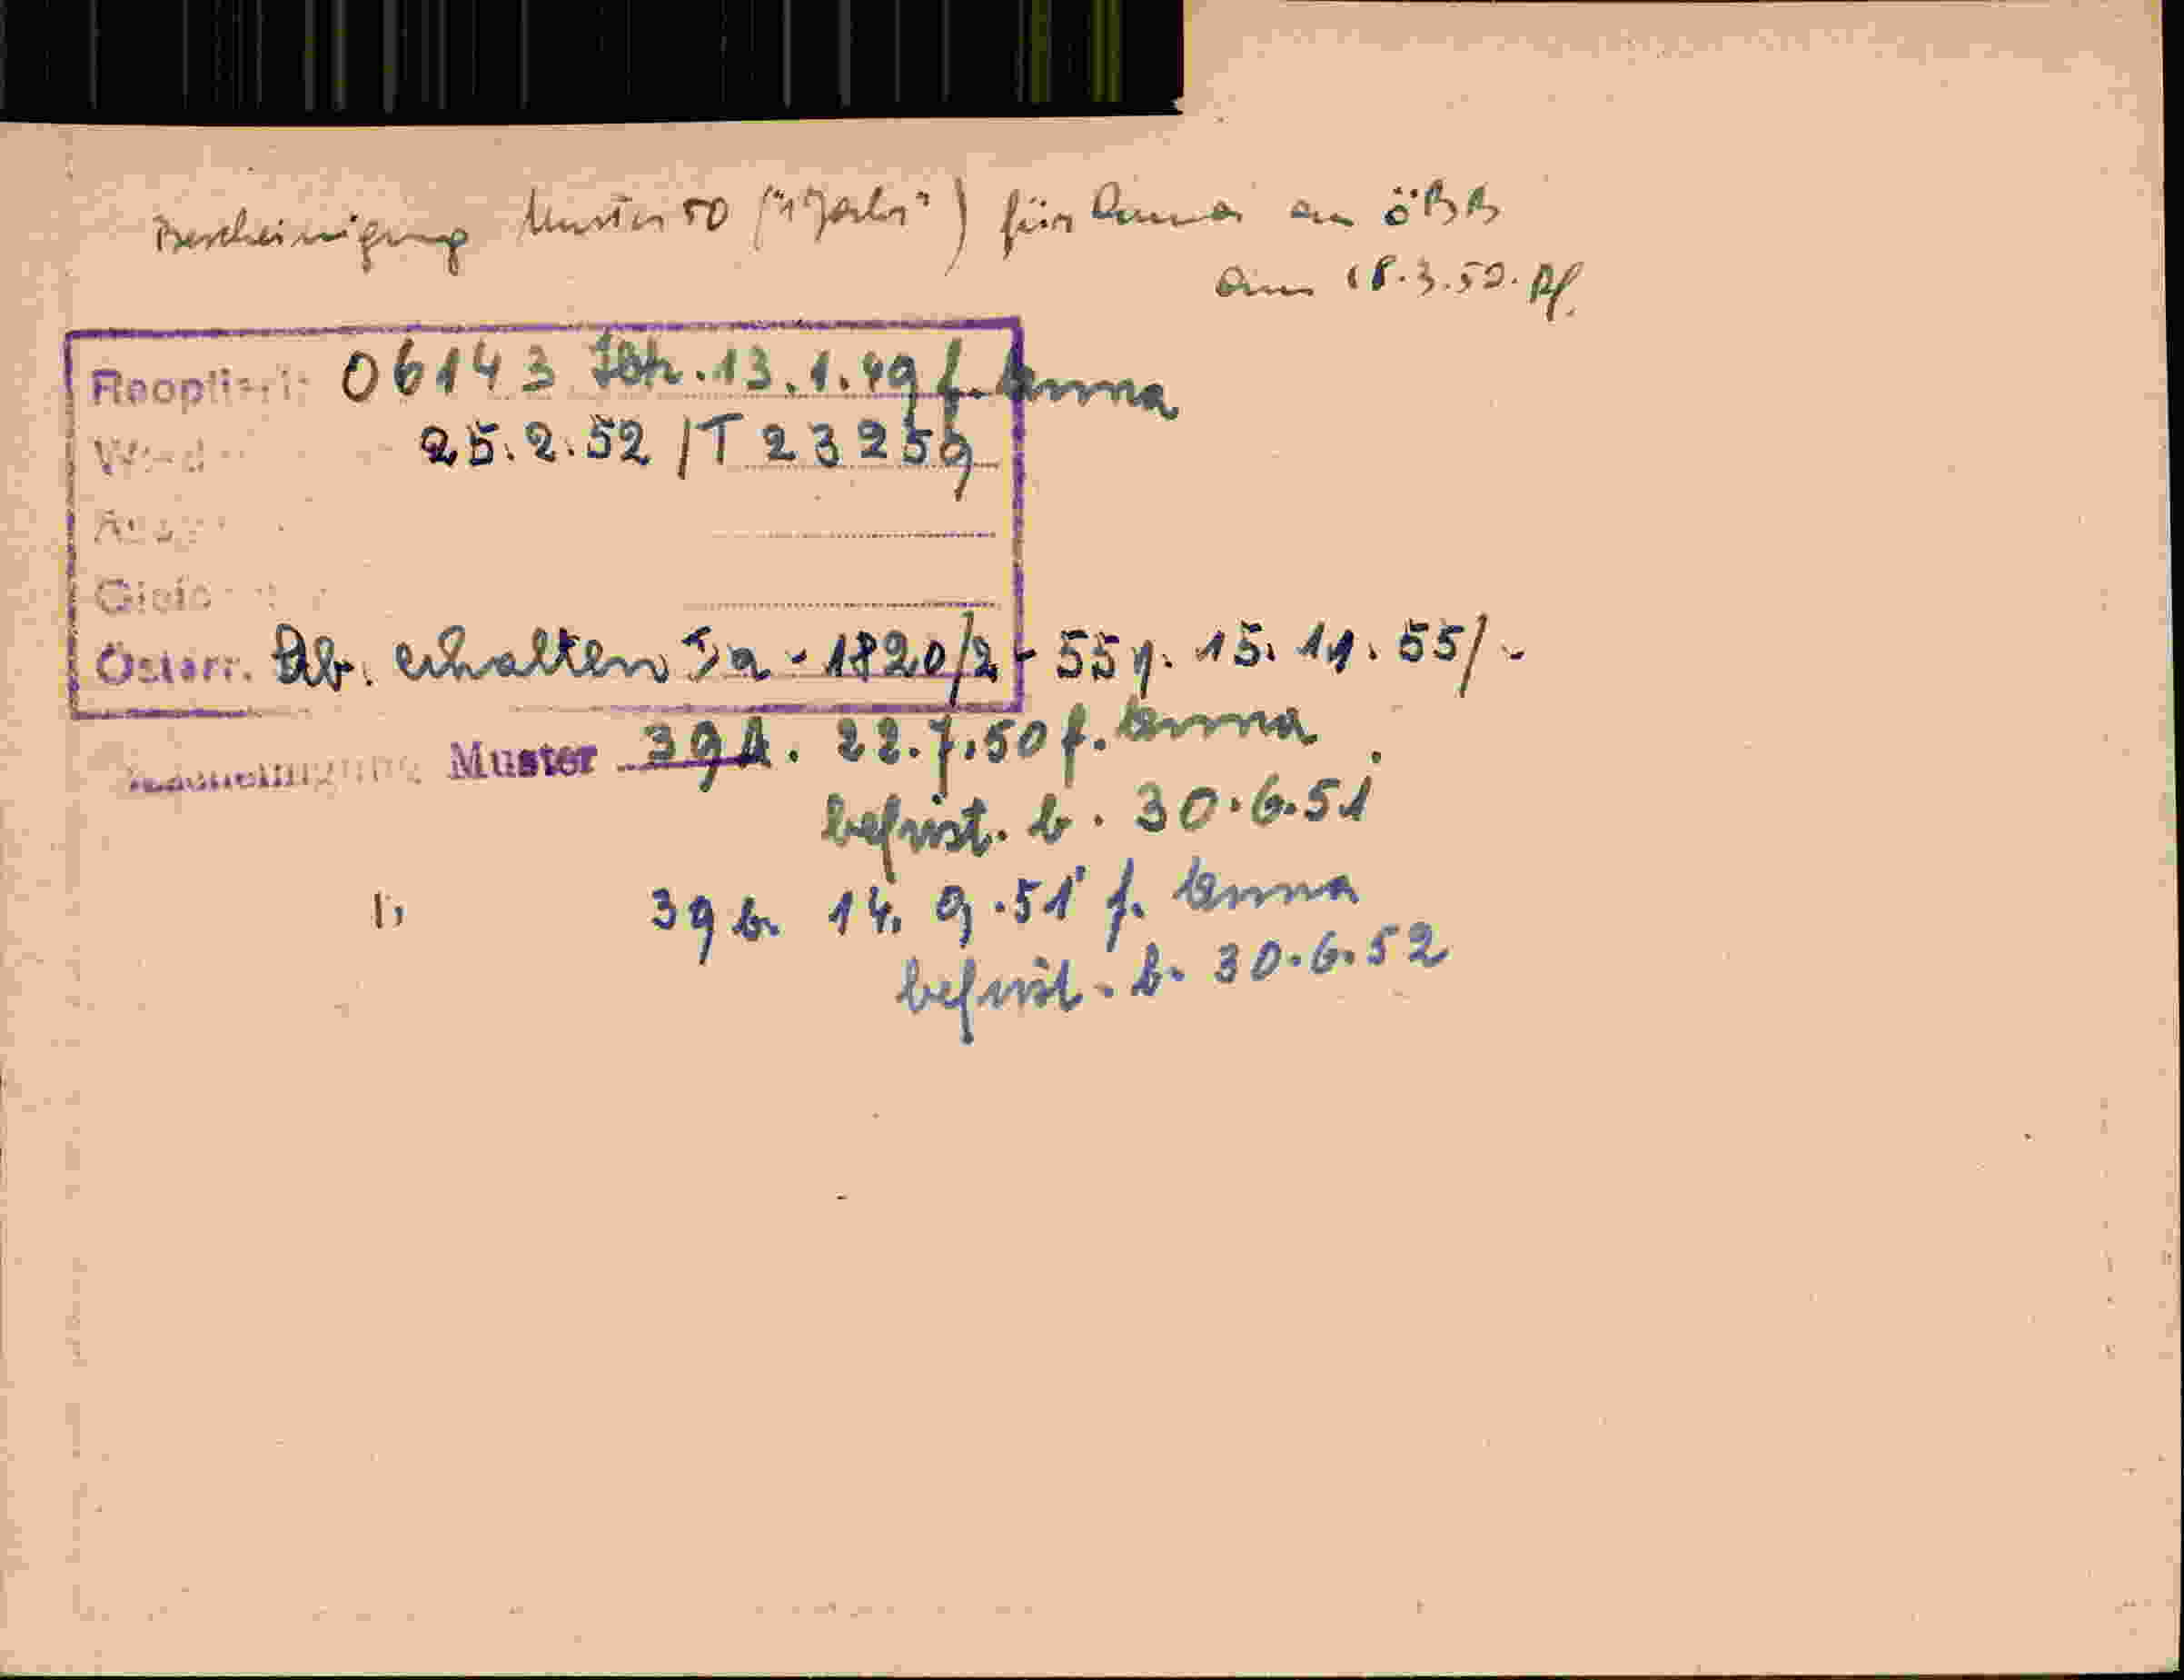 Bescheinigung Muster 50 ("1 Jahr") für Anna an ÖBB
am 18.3.52.
06143 13.1.49 f. Anna
25.2.52 /T 23259
Österr. Stb. erhalten Ia-1820/2-55 v. 15.11.55/-
Muster 39b. 22.7.50 f. Anna
befrist. b. 30.6.51
39b. 14.9.51 f. Anna
befrist. b. 30.6.52